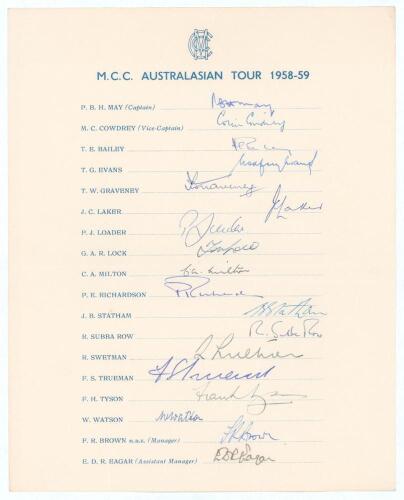 MCC
M.C.C. AUSTRALASIAN TOUR 1958-59
P. B. H. MAY (Captain) PBH May
M. C. COWDREY (Vice-Captain) Colin Cowdrey
T. E. BAILEY TE Bailey
T. G. EVANS Godfrey Evans
T. W. GRAVENEY T Graveney
J. C. LAKER J Laker
P. J. LOADER P J Loader
G. A. R. LOCK Tony Lock
C. A. MILTON C.A. Milton
P. E. RICHARDSON P Richardson
J. B. STATHAM J B Statham
R. SUBBA ROW R. Subba Row
R. SWETMAN R Swetman
F. S. TRUEMAN F S Trueman
F. H. TYSON Frank Tyson
W. WATSON W Watson
F. R. BROWN M.B.E. (Manager) F R Brown
E. D. R. EAGAR (Assistant Manager) E D R Eagar